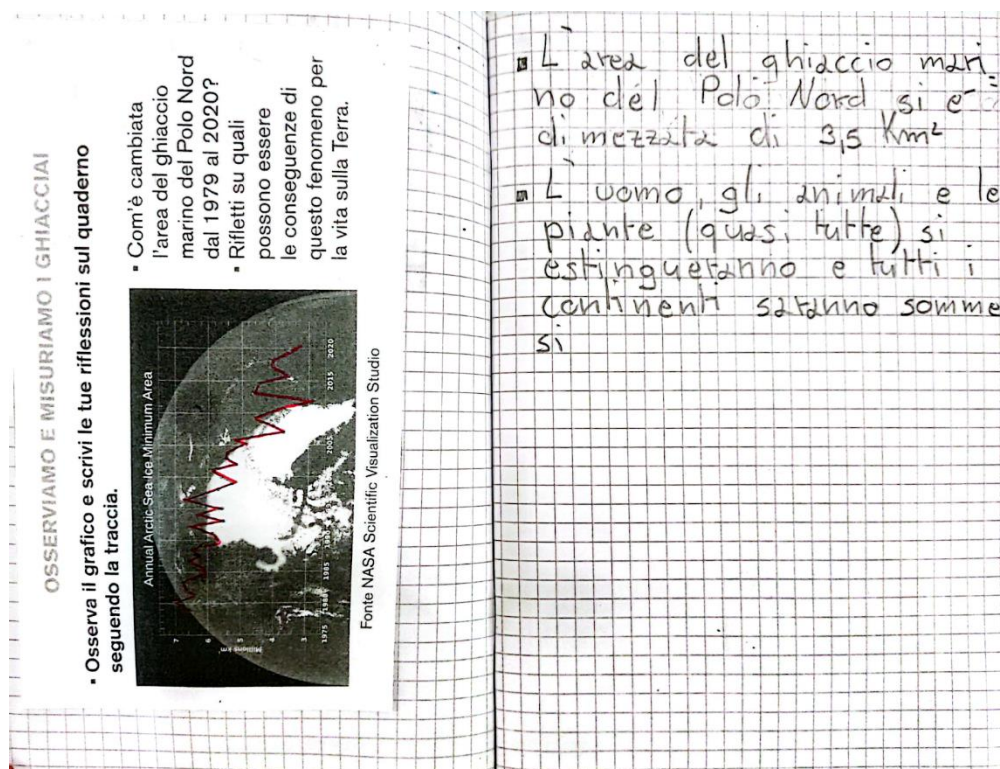 OSSERVIAMO E MISURIAMO I GHIACCIAI
▪ Osserva il grafico e scrivi le tue riflessioni sul quaderno
seguendo la traccia.
Annual Arctic Sea Ice Minimum Area
7
6
5
4
3
Millions km
1975
1980
1985
2005
2015
2020
Fonte NASA Scientific Visualization Studio
▪ Com'è cambiata
l'area del ghiaccio
marino del Polo Nord
dal 1979 al 2020?
▪ Rifletti su quali
possono essere
le conseguenze di
questo fenomeno per
la vita sulla Terra.
▪ L'area del ghiaccio mari
no del Polo Nord si è
dimezzata di 3,5 Km²
▪ L'uomo, gli animali e le
piante (quasi tutte) si
estingueranno e tutti i
continenti saranno somme
si